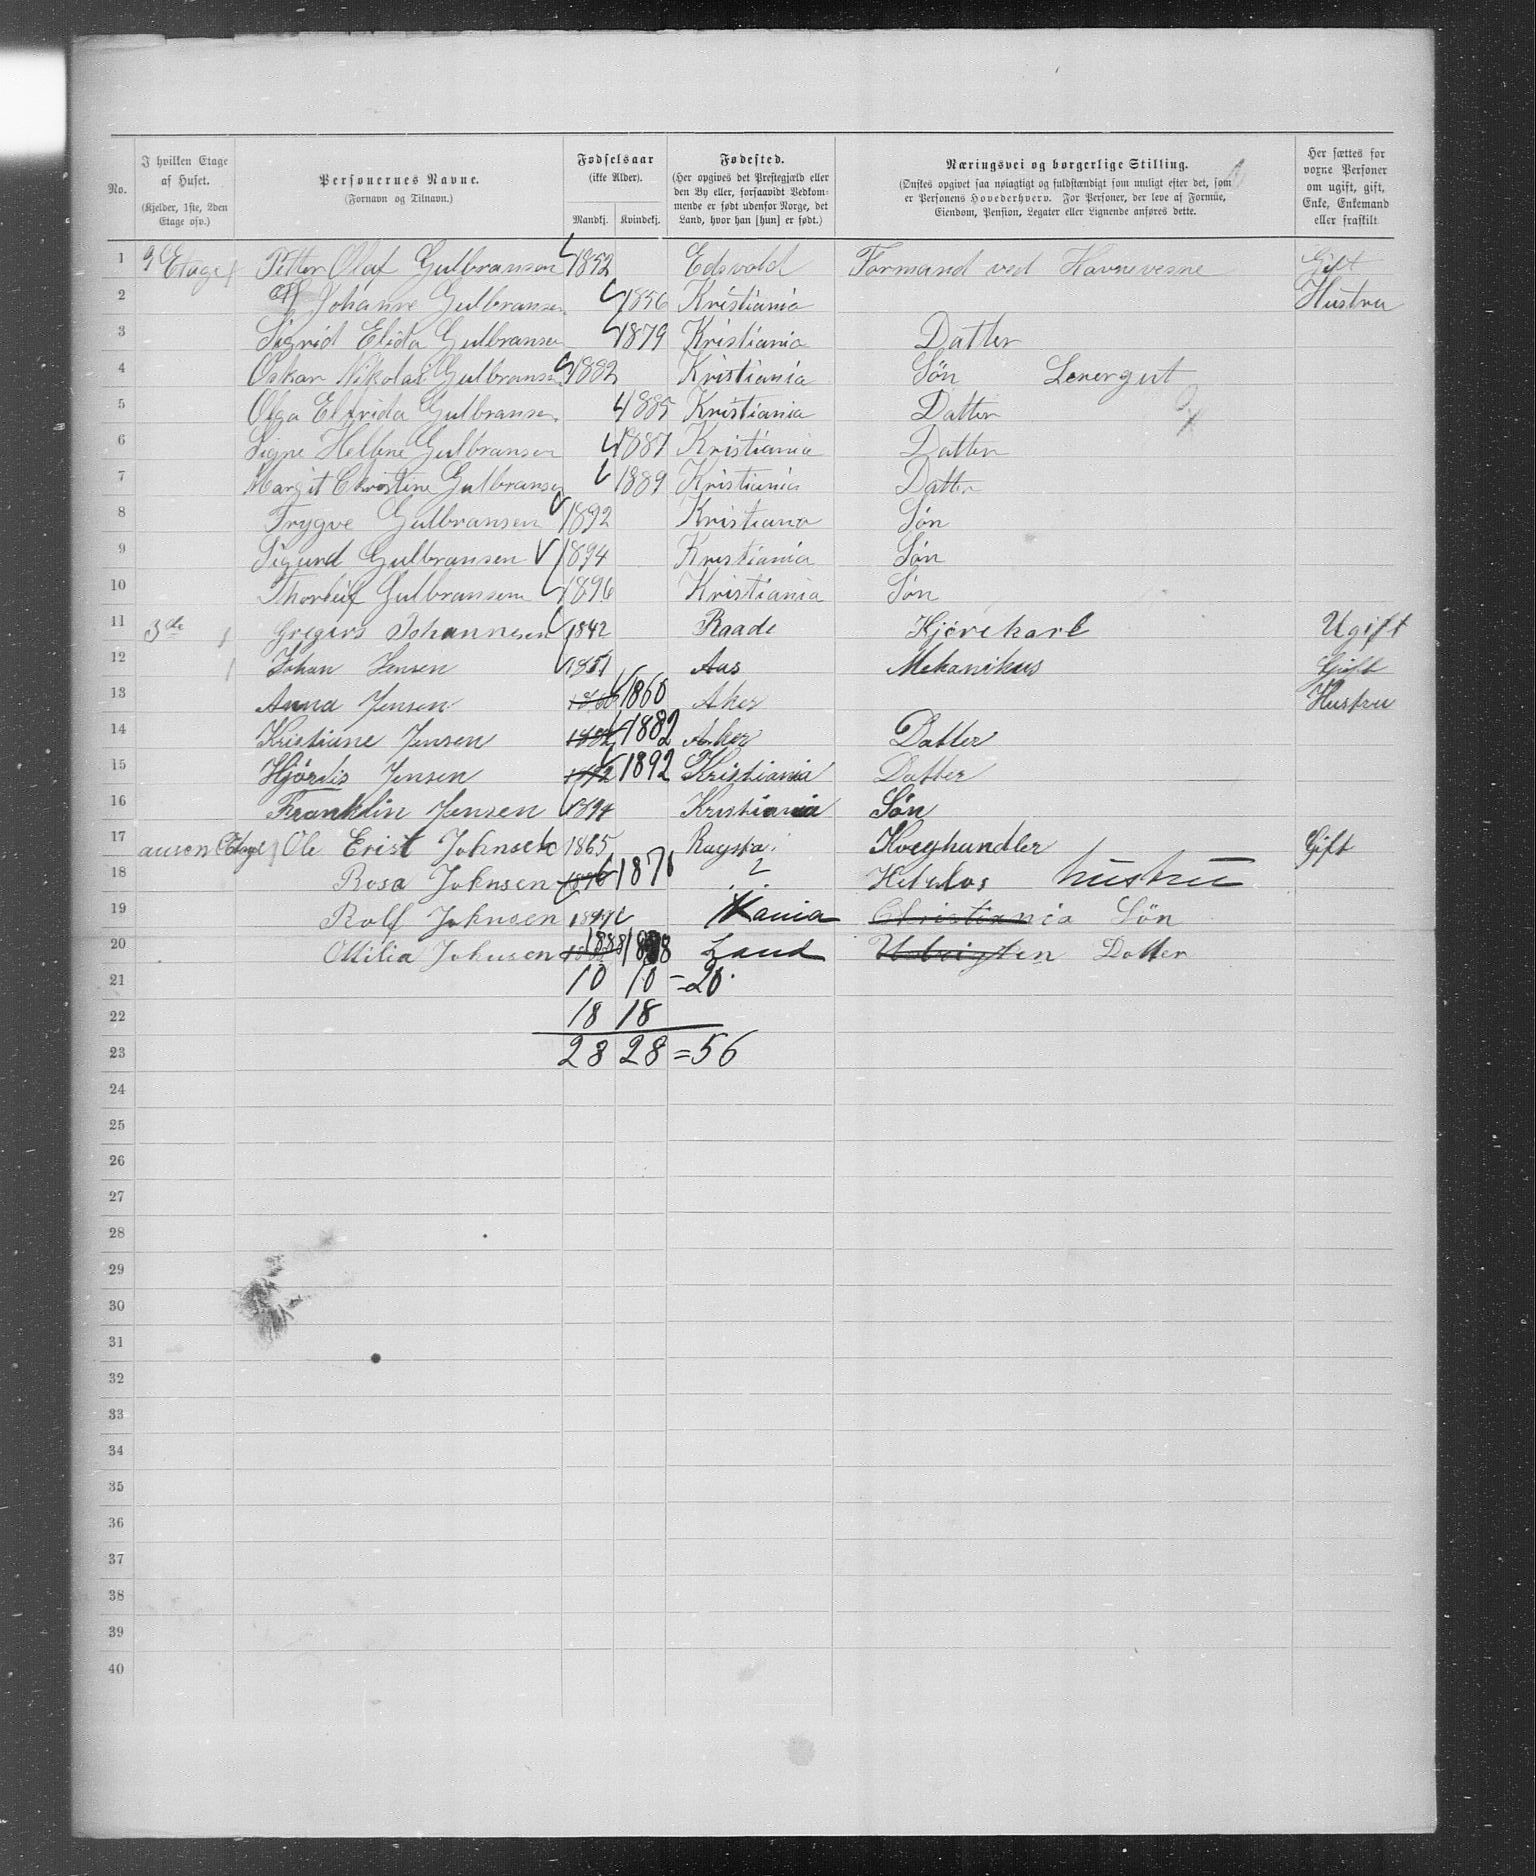 No. | I hvilken Etage af Huset. (Kjelder, 1ste, 2den Etage osv.) | Personernes Navne. (Fornavn og Tilnavn.) | Fødselsaar (ikke Alder). Mandkj. Kvindekj. | Fødested. (Her opgives det Prestegjæld eller den By eller, forsaavidt Vedkommende er født udenfor Norge, det Land, hvor han [hun] er født.) | Næringsvei og borgerlige Stilling. (Ønskes opgivet saa nøiagtigt og fuldstændigt som muligt efter det, som er Personens Hovederhverv. For Personer, der leve af Formue, Eiendom, Pension, Legater eller Lignende anføres dette.) | Her sættes for vorne Personer om ugift, gift, Enke, Enkemand eller fraskilt.
1 Etage Petter Olaf Gulbransen 1852 Edsvold Formand ved Havnevesne Gift
2 Johanne Gulbransen 1856 Kristiania Hustru
3 Sigrid Elida Gulbransen 1879 Kristiania Datter
4 Oskar Nikolai Gulbransen 1882 Kristiania Søn
5 Olga Elfrida Gulbransen 1885 Kristiania Datter
6 Signe Hellene Gulbransen 1887 Kristiania Datter
7 Margit Christine Gulbransen 1889 Kristiania Datter
8 Trygve Gulbransen 1892 Kristiana Søn
9 Sigurd Gulbransen 1894 Kristiania Søn
10 Thorleif Gulbransen 1896 Kristiania Søn
11 3de Gregers Johannesen 1842 Raade Kjørekarl Ugift
12 Johan Jensen 1851 Aas Mekanikus Gift
13 Anna Jensen 1860 1860 Aker Hustru
14 Kristiane Jensen 1882 1882 Aker Datter
15 Hjørdis Jensen 1892 1892 Kristiania Datter
16 Franklin Jensen 1894 Kristiania Søn
17 Etage Ole Erist Johnsen 1865 Kvæghandler Gift
18 Rosa Johnsen 1876 1876 ? Hustru
19 Rolf Johnsen Kania Christiania Søn
20 Ottilia Johnsen 1888 Land Datter
21 10 10 = 20
22 18 18
23 28 28 = 56
24
25
26
27
28
29
30
31
32
33
34
35
36
37
38
39
40